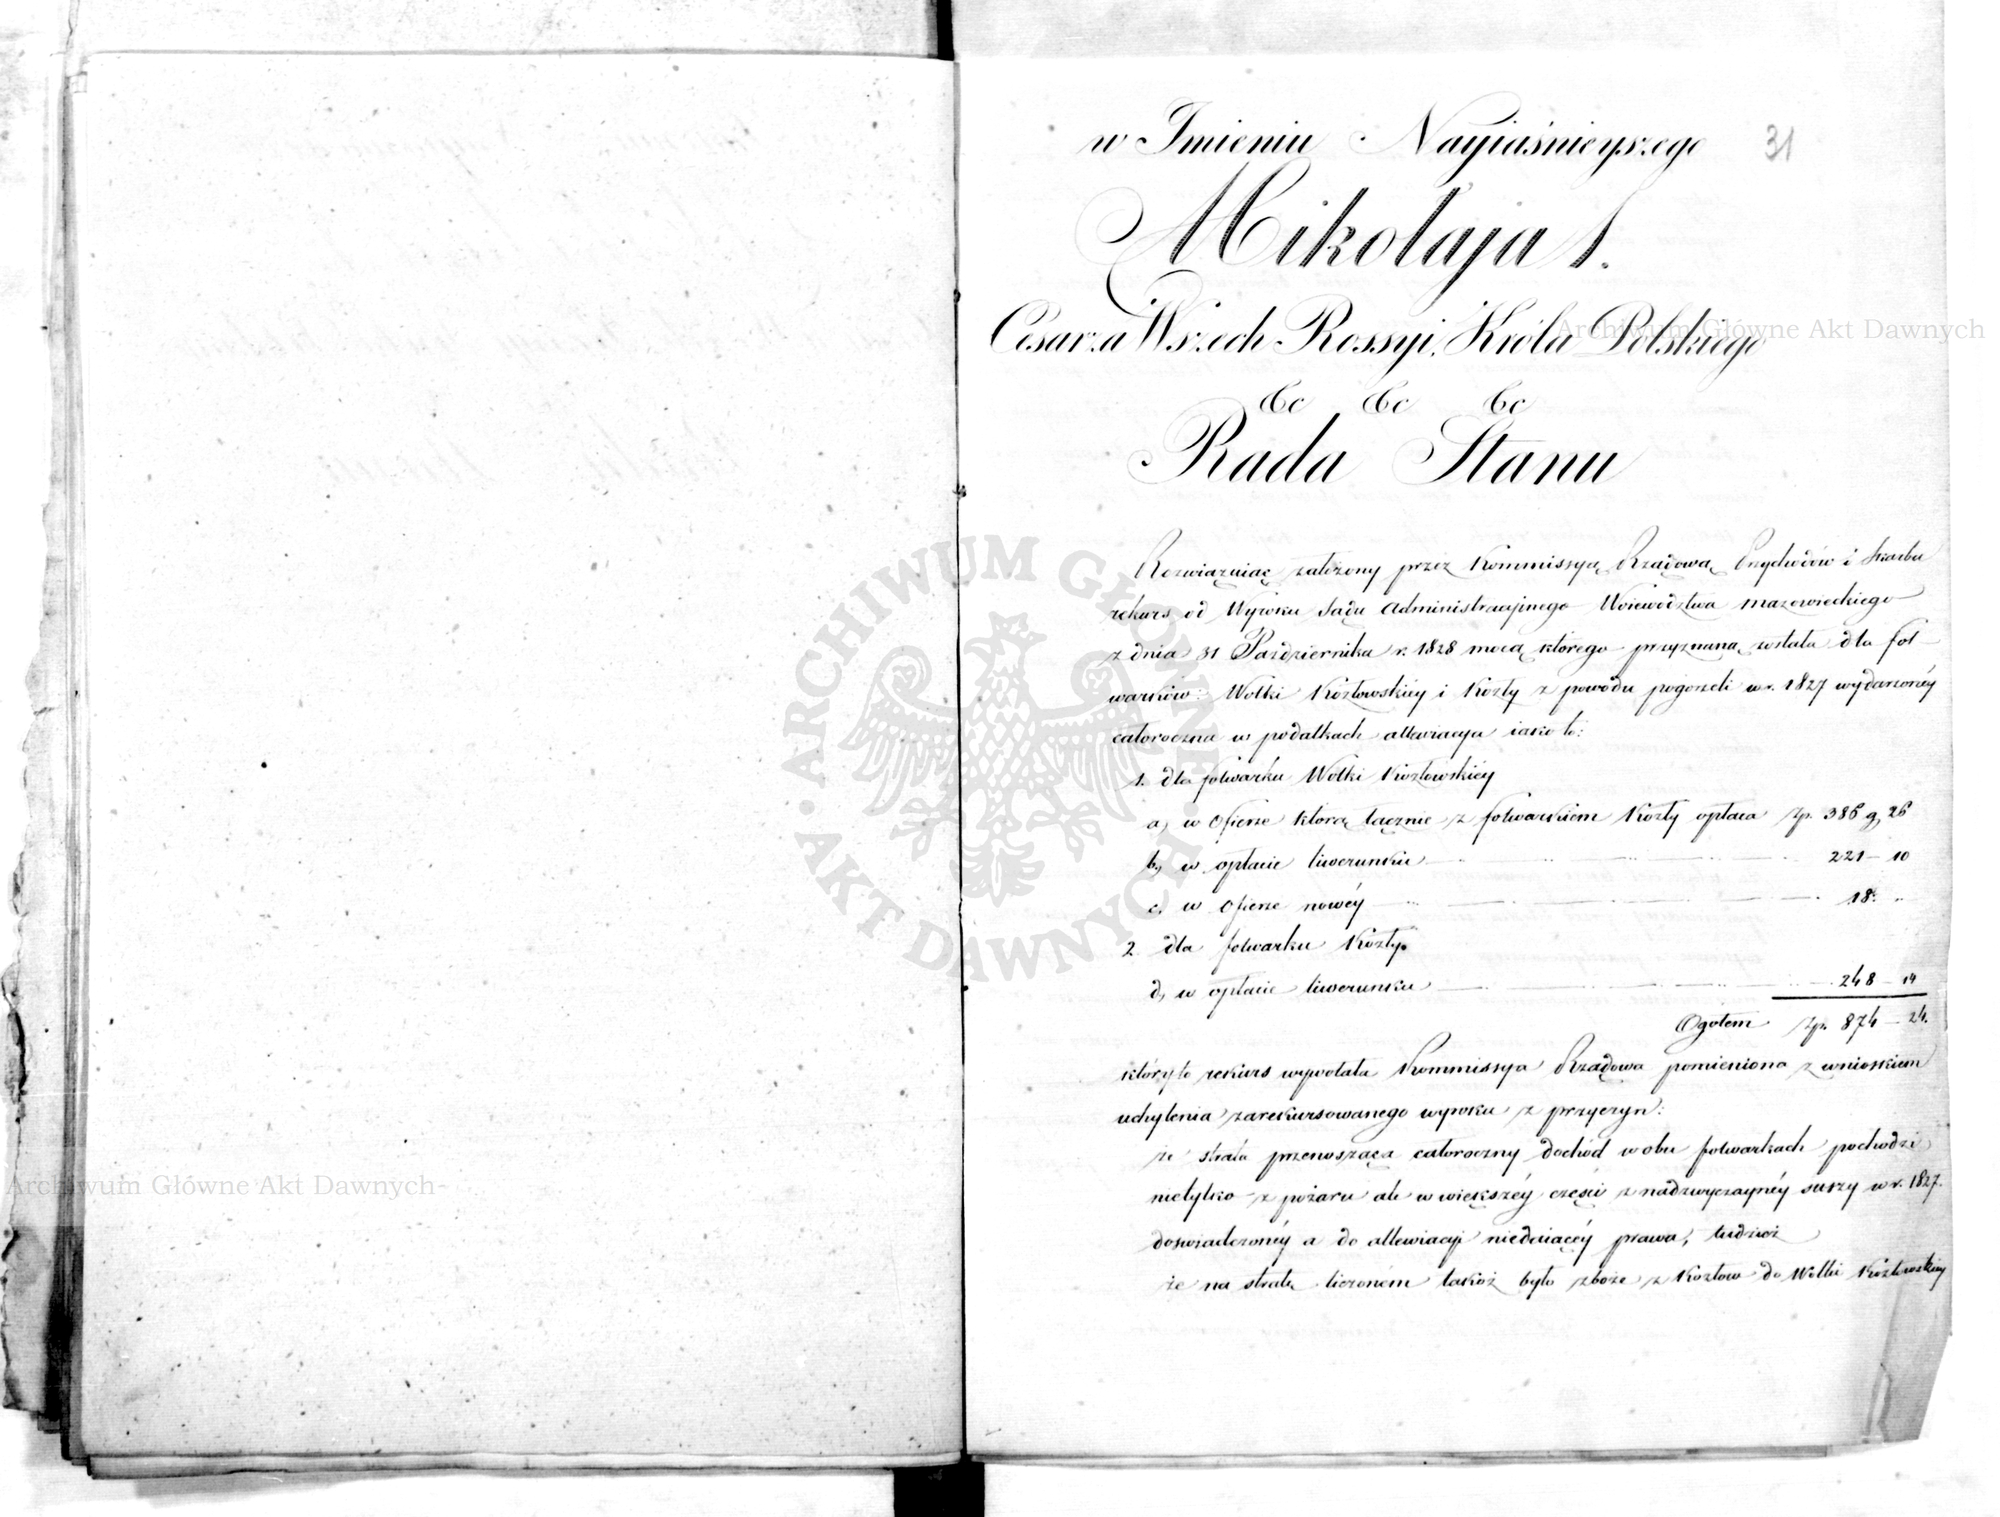 31
w Imieniu Nayiaśnieyszego
Mikołaja I.
Cesarza Wszech Rossyi, Króla Polskiego
&c &c &c
Rada Stanu
Rozwiązuiąc założony przez Kommissyą Rządową Przychodów i Skarbu
rekurs od Wyroku Sądu Administracyinego Woiewodztwa Mazowieckiego
z dnia 31 Października r. 1828 mocą którego przyznaną została dla fol-
warków: Wolki Kozłowskiéy i Kozły z powodu pogorzeli w r. 1827 wydarzonéy
całoroczna w podatkach allewiacya iako to:
1. dla folwarku Wolki Kozłowskiéy
a, w Ofierze którą łącznie z folwarkiem Kozły opłaca Zp. 386 g, 26
b, w opłacie liwerunku 221 - 10
c, w Ofierze nowéy 18. "
2 dla folwarku Kozły.
d, w opłacie liwerunku 248 - 14
Ogołem Zp. 874 - 24.
któryto rekurs wywołała Kommissya Rządowa pomieniona z wnioskiem
uchylenia zarekursowanego wyroku z przyczyn:
że strata przenosząca całoroczny dochód w obu folwarkach pochodzi
nietylko z pożaru ale w większéy części z nadzwyczaynéy suszy w r. 1827.
doświadczonéy a do allewiacyi niedaiącéy prawa, tudzież
że na stratę liczoném także było zboże z Kozłow do Wolki Kozłowskiey
ARCHIWUM GŁÓWNE AKT DAWNYCH
Archiwum Główne Akt Dawnych
Archiwum Główne Akt Dawnych